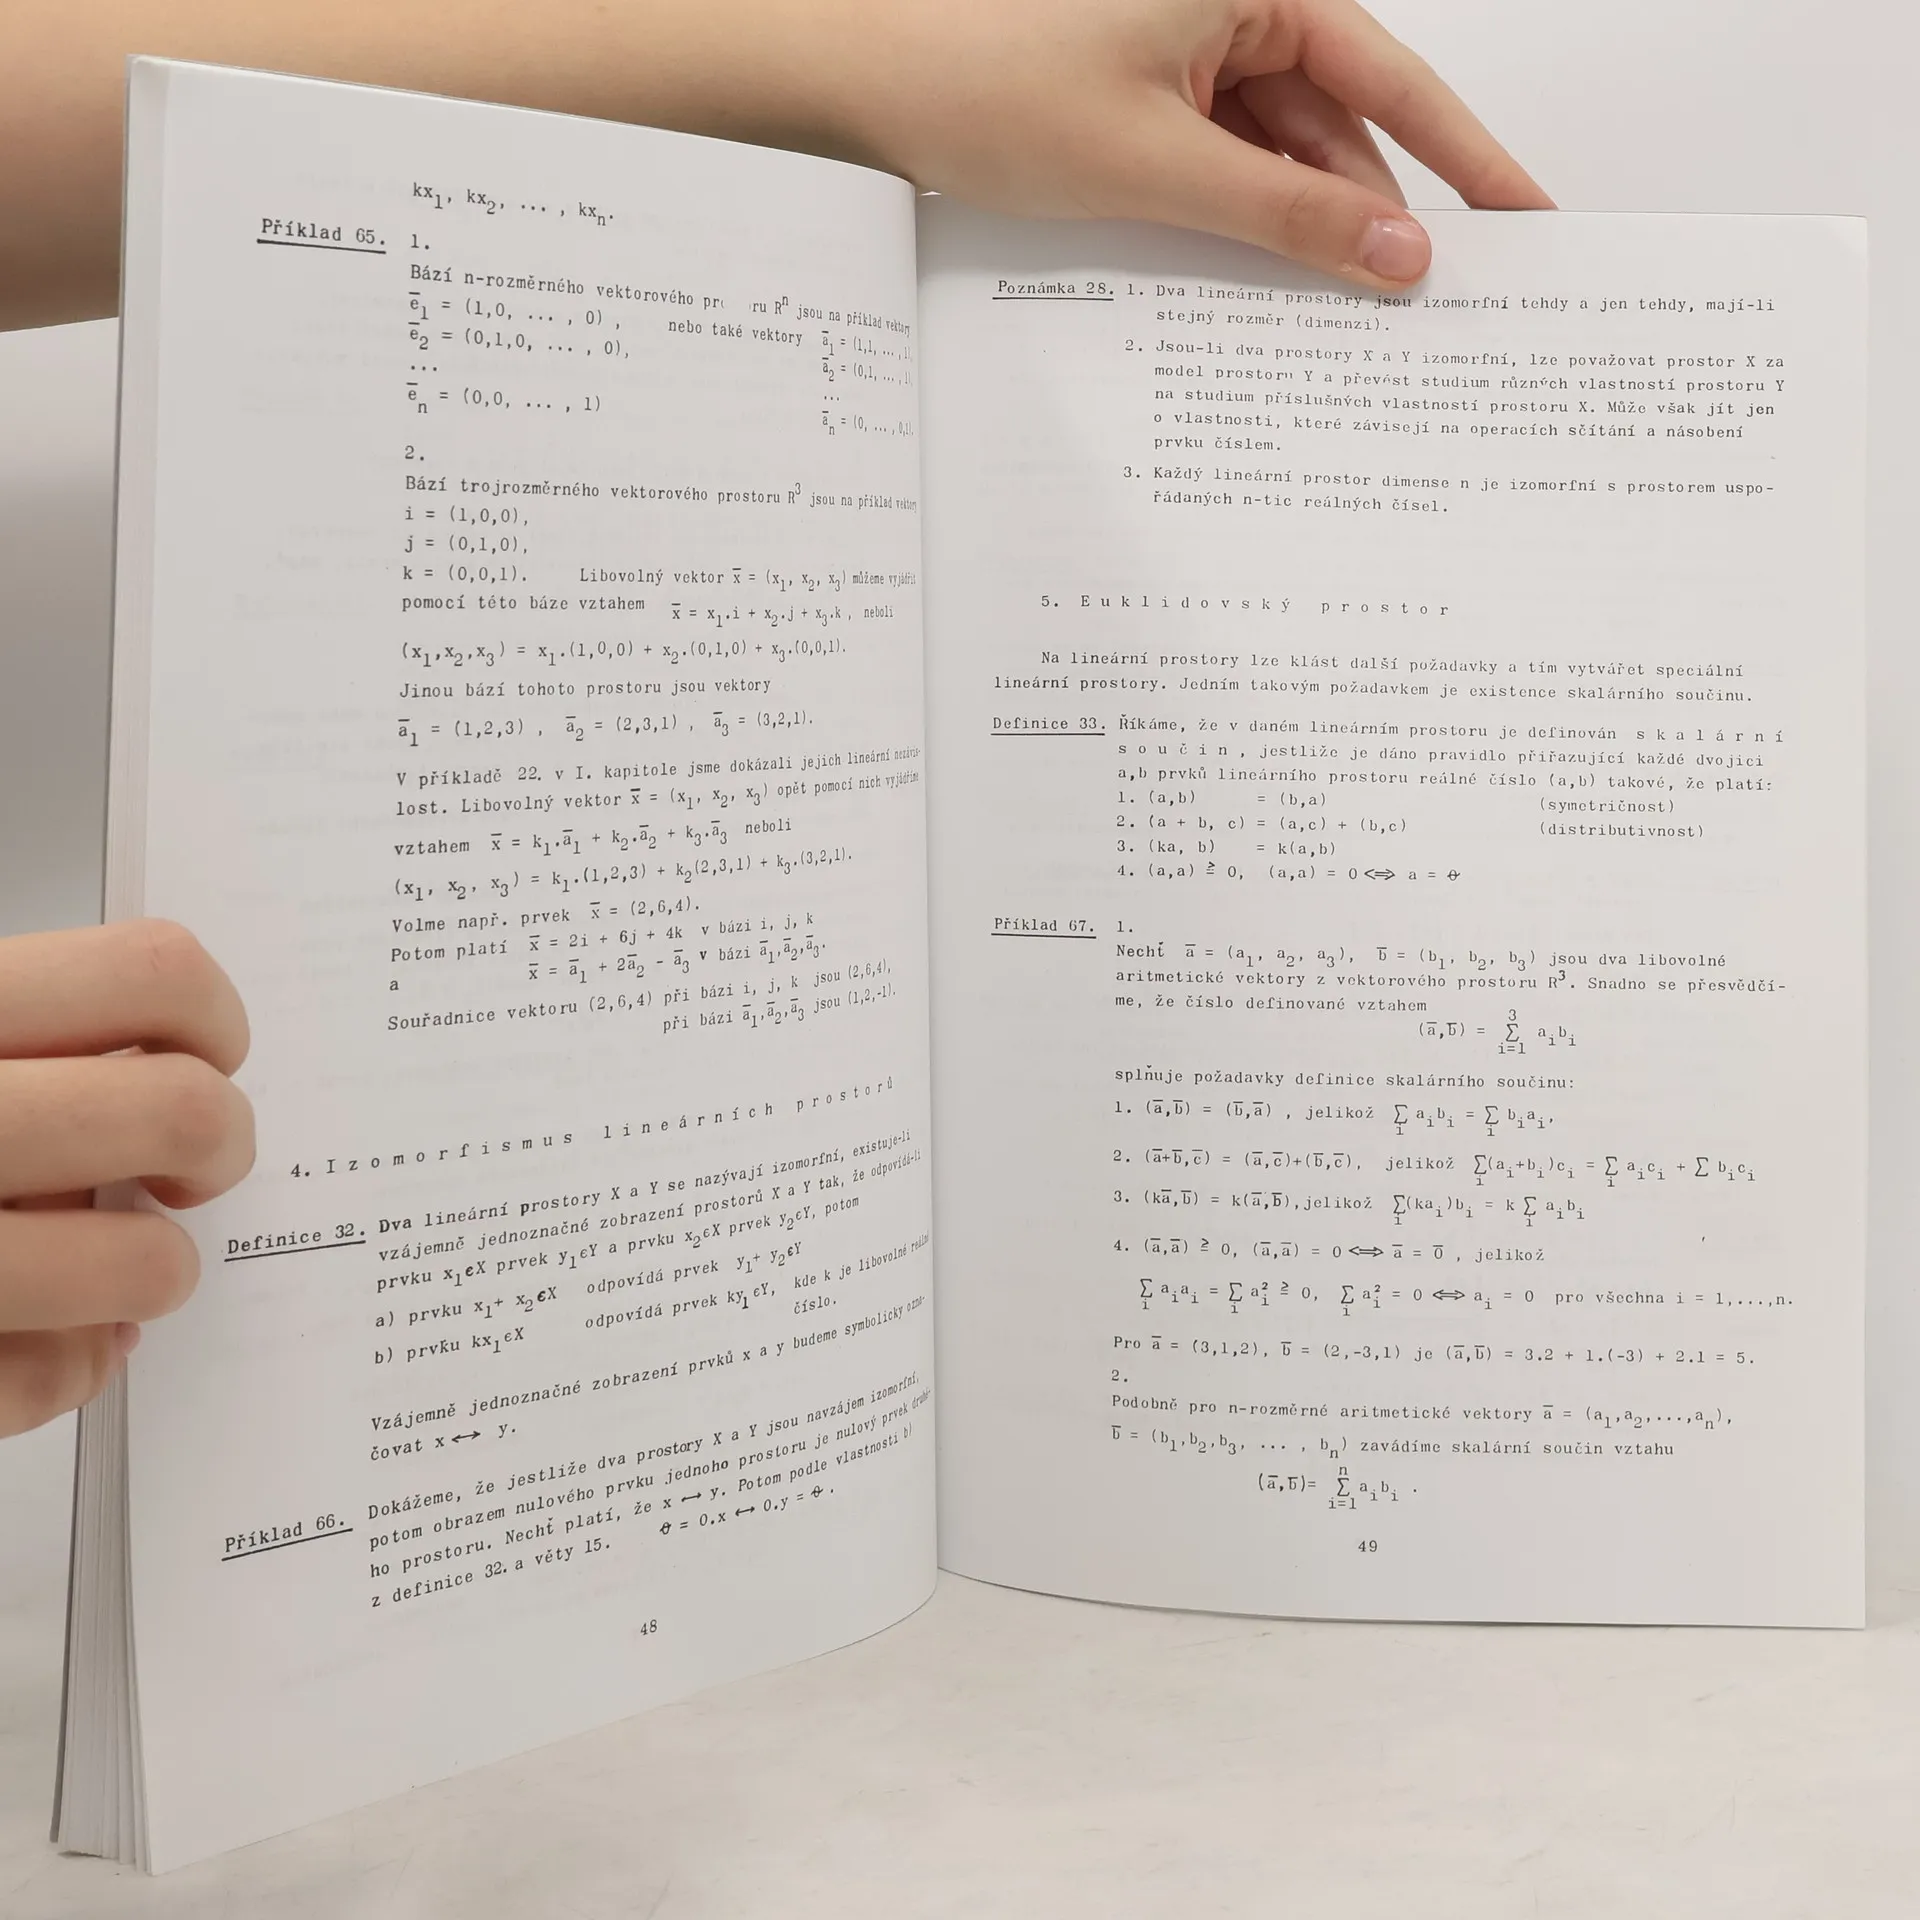 kx₁, kx₂, ... , kxₙ.
Příklad 65. 1.
Bází n-rozměrného vektorového ru Rⁿ jsou na příklad vektory
e̅₁ = (1,0, ... , 0) , nebo také vektory a̅₁ = (1,1, ... ,1),
e̅₂ = (0,1,0, ... , 0), a̅₂ = (0,1, ... ,1),
... ...
e̅ₙ = (0,0, ... , 1) a̅ₙ = (0, ... , 0,1).
2.
Bází trojrozměrného vektorového prostoru R³ jsou na příklad vektory
i = (1,0,0),
j = (0,1,0),
k = (0,0,1). Libovolný vektor x̅ = (x₁, x₂, x₃) můžeme vyjádřit
pomocí této báze vztahem x̅ = x₁.i + x₂.j + x₃.k , neboli
(x₁,x₂,x₃) = x₁.(1,0,0) + x₂.(0,1,0) + x₃.(0,0,1).
Jinou bází tohoto prostoru jsou vektory
a̅₁ = (1,2,3) , a̅₂ = (2,3,1) , a̅₃ = (3,2,1).
V příkladě 22. v I. kapitole jsme dokázali jejich lineární nezávis-
lost. Libovolný vektor x̅ = (x₁, x₂, x₃) opět pomocí nich vyjádříme
vztahem x̅ = k₁.a̅₁ + k₂.a̅₂ + k₃.a̅₃ neboli
(x₁, x₂, x₃) = k₁.(1,2,3) + k₂(2,3,1) + k₃.(3,2,1).
Volme např. prvek x̅ = (2,6,4).
Potom platí x̅ = 2i + 6j + 4k v bázi i, j, k
a x̅ = a̅₁ + 2a̅₂ - a̅₃ v bázi a̅₁,a̅₂,a̅₃.
Souřadnice vektoru (2,6,4) při bázi i, j, k jsou (2,6,4),
při bázi a̅₁,a̅₂,a̅₃ jsou (1,2,-1).
4. Izomorfismus lineárních prostorů
Definice 32. Dva lineární prostory X a Y se nazývají izomorfní, existuje-li
vzájemně jednoznačné zobrazení prostorů X a Y tak, že odpovídá-li
prvku x₁ϵX prvek y₁ϵY a prvku x₂ϵX prvek y₂ϵY, potom
a) prvku x₁+ x₂ϵX odpovídá prvek y₁+ y₂ϵY
b) prvku kx₁ϵX odpovídá prvek ky₁ϵY, kde k je libovolné reálné
číslo.
Vzájemně jednoznačné zobrazení prvků x a y budeme symbolicky ozna-
čovat x ⟷ y.
Příklad 66. Dokážeme, že jestliže dva prostory X a Y jsou navzájem izomorfní,
potom obrazem nulového prvku jednoho prostoru je nulový prvek druhé-
ho prostoru. Nechť platí, že x ⟷ y. Potom podle vlastnosti b)
z definice 32. a věty 15. θ = 0.x ⟷ 0.y = θ .
48
Poznámka 28. 1. Dva lineární prostory jsou izomorfní tehdy a jen tehdy, mají-li
stejný rozměr (dimenzi).
2. Jsou-li dva prostory X a Y izomorfní, lze považovat prostor X za
model prostoru Y a převést studium různých vlastností prostoru Y
na studium příslušných vlastností prostoru X. Může však jít jen
o vlastnosti, které závisejí na operacích sčítání a násobení
prvku číslem.
3. Každý lineární prostor dimense n je izomorfní s prostorem uspo-
řádaných n-tic reálných čísel.
5. Euklidovský prostor
Na lineární prostory lze klást další požadavky a tím vytvářet speciální
lineární prostory. Jedním takovým požadavkem je existence skalárního součinu.
Definice 33. Říkáme, že v daném lineárním prostoru je definován skalární
součin, jestliže je dáno pravidlo přiřazující každé dvojici
a,b prvků lineárního prostoru reálné číslo (a,b) takové, že platí:
1. (a,b) = (b,a) (symetričnost)
2. (a + b, c) = (a,c) + (b,c) (distributivnost)
3. (ka, b) = k(a,b)
4. (a,a) ≧ 0, (a,a) = 0 ⟺ a = θ
Příklad 67. 1.
Nechť a̅ = (a₁, a₂, a₃), b̅ = (b₁, b₂, b₃) jsou dva libovolné
aritmetické vektory z vektorového prostoru R³. Snadno se přesvědčí-
me, že číslo definované vztahem
(a̅,b̅) = 3 Σ i=1 aᵢbᵢ
splňuje požadavky definice skalárního součinu:
1. (a̅,b̅) = (b̅,a̅) , jelikož Σᵢ aᵢbᵢ = Σᵢ bᵢaᵢ,
2. (a̅+b̅,c̅) = (a̅,c̅)+(b̅,c̅), jelikož Σᵢ(aᵢ+bᵢ)cᵢ = Σᵢ aᵢcᵢ + Σ bᵢcᵢ
3. (ka̅,b̅) = k(a̅,b̅),jelikož Σᵢ(kaᵢ)bᵢ = k Σᵢ aᵢbᵢ
4. (a̅,a̅) ≧ 0, (a̅,a̅) = 0 ⟺ a̅ = 0̅ , jelikož
Σᵢ aᵢaᵢ = Σᵢ aᵢ² ≧ 0, Σᵢ aᵢ² = 0 ⟺ aᵢ = 0 pro všechna i = 1,...,n.
Pro a̅ = (3,1,2), b̅ = (2,-3,1) je (a̅,b̅) = 3.2 + 1.(-3) + 2.1 = 5.
2.
Podobně pro n-rozměrné aritmetické vektory a̅ = (a₁,a₂,...,aₙ),
b̅ = (b₁,b₂,b₃, ... , bₙ) zavádíme skalární součin vztahu
(a̅,b̅)= n Σ i=1 aᵢbᵢ .
49